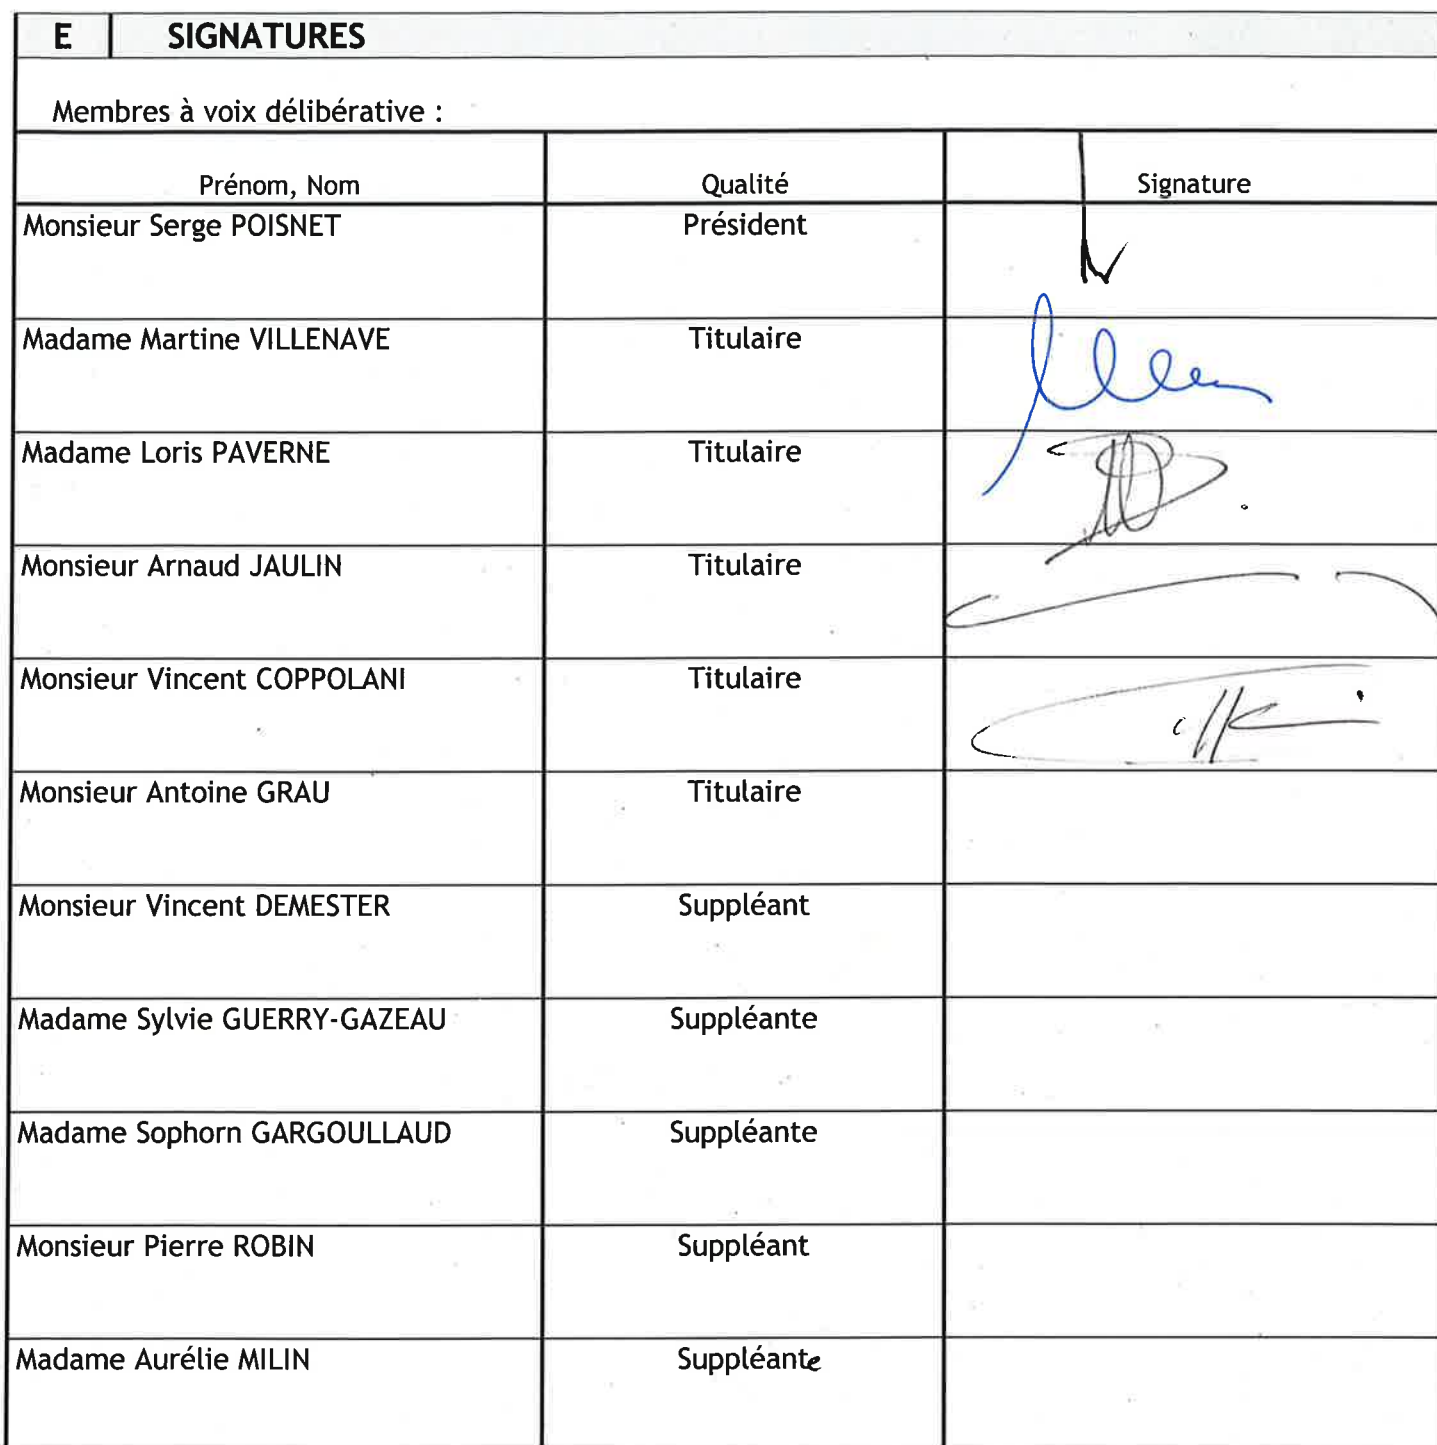 E SIGNATURES
Membres à voix délibérative :
Prénom, Nom Qualité Signature
Monsieur Serge POISNET Président
Madame Martine VILLENAVE Titulaire
Madame Loris PAVERNE Titulaire
Monsieur Arnaud JAULIN Titulaire
Monsieur Vincent COPPOLANI Titulaire
Monsieur Antoine GRAU Titulaire
Monsieur Vincent DEMESTER Suppléant
Madame Sylvie GUERRY-GAZEAU Suppléante
Madame Sophorn GARGOULLAUD Suppléante
Monsieur Pierre ROBIN Suppléant
Madame Aurélie MILIN Suppléante